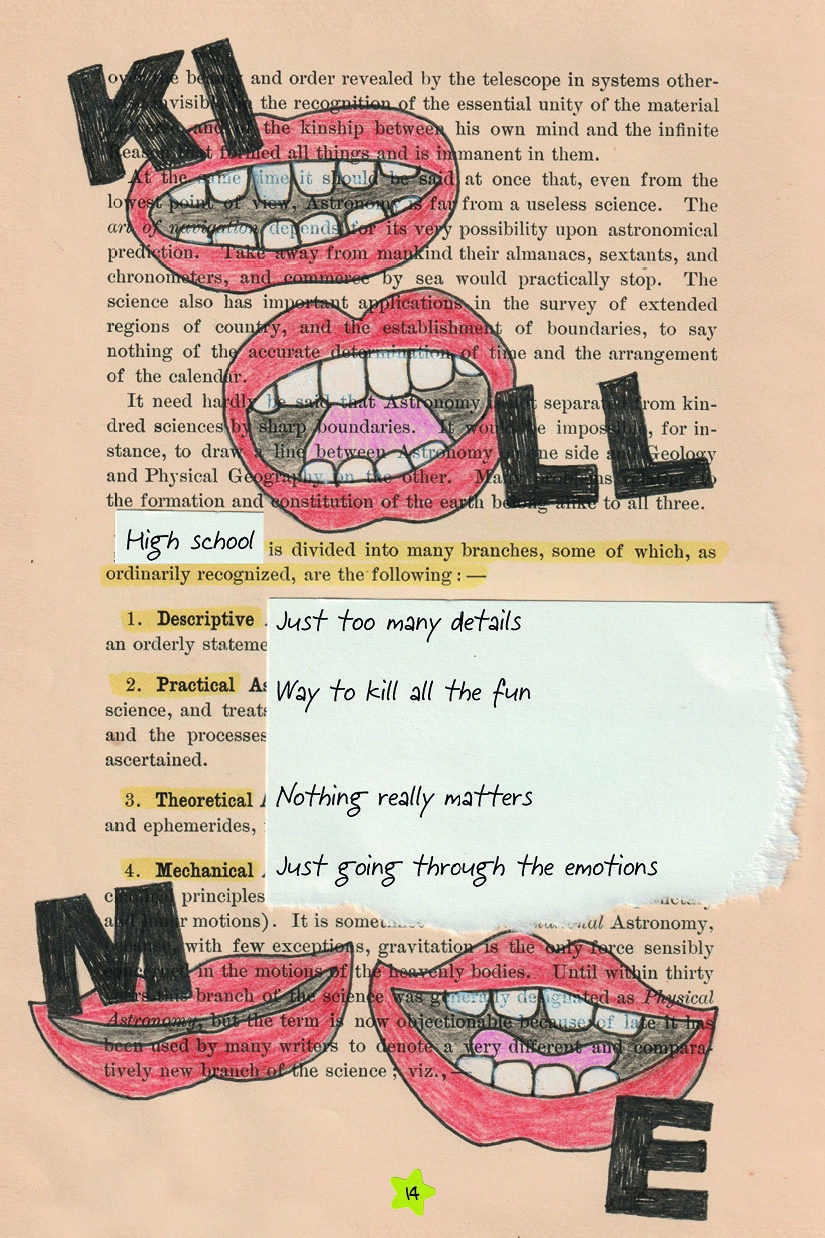 KI
over the beauty and order revealed by the telescope in systems other-
invisible, in the recognition of the essential unity of the material
and of the kinship between his own mind and the infinite
that formed all things and is immanent in them.
At the same time it should be said at once that, even from the
lowest point of view, Astronomy is far from a useless science. The
art of navigation depends for its very possibility upon astronomical
prediction. Take away from mankind their almanacs, sextants, and
chronometers, and commerce by sea would practically stop. The
science also has important applications in the survey of extended
regions of country, and the establishment of boundaries, to say
nothing of the accurate determination of time and the arrangement
of the calendar.
It need hardly be said that Astronomy is not separated from kin-
dred sciences by sharp boundaries. It would be impossible, for in-
stance, to draw a line between Astronomy on one side and Geology
and Physical Geography on the other. Many problems relating to
the formation and constitution of the earth belong alike to all three.
LL
High school is divided into many branches, some of which, as
ordinarily recognized, are the following : —
1. Descriptive Just too many details
an orderly stateme
2. Practical As Way to kill all the fun
science, and treats
and the processes
ascertained.
3. Theoretical A Nothing really matters
and ephemerides,
4. Mechanical A Just going through the emotions
principles
and lunar motions). It is sometimes Astronomy,
because, with few exceptions, gravitation is the only force sensibly
concerned in the motions of the heavenly bodies. Until within thirty
years this branch of the science was generally designated as Physical
Astronomy, but the term is now objectionable because of late it has
been used by many writers to denote a very different and compara-
tively new branch of the science ; viz.,
M
E
14